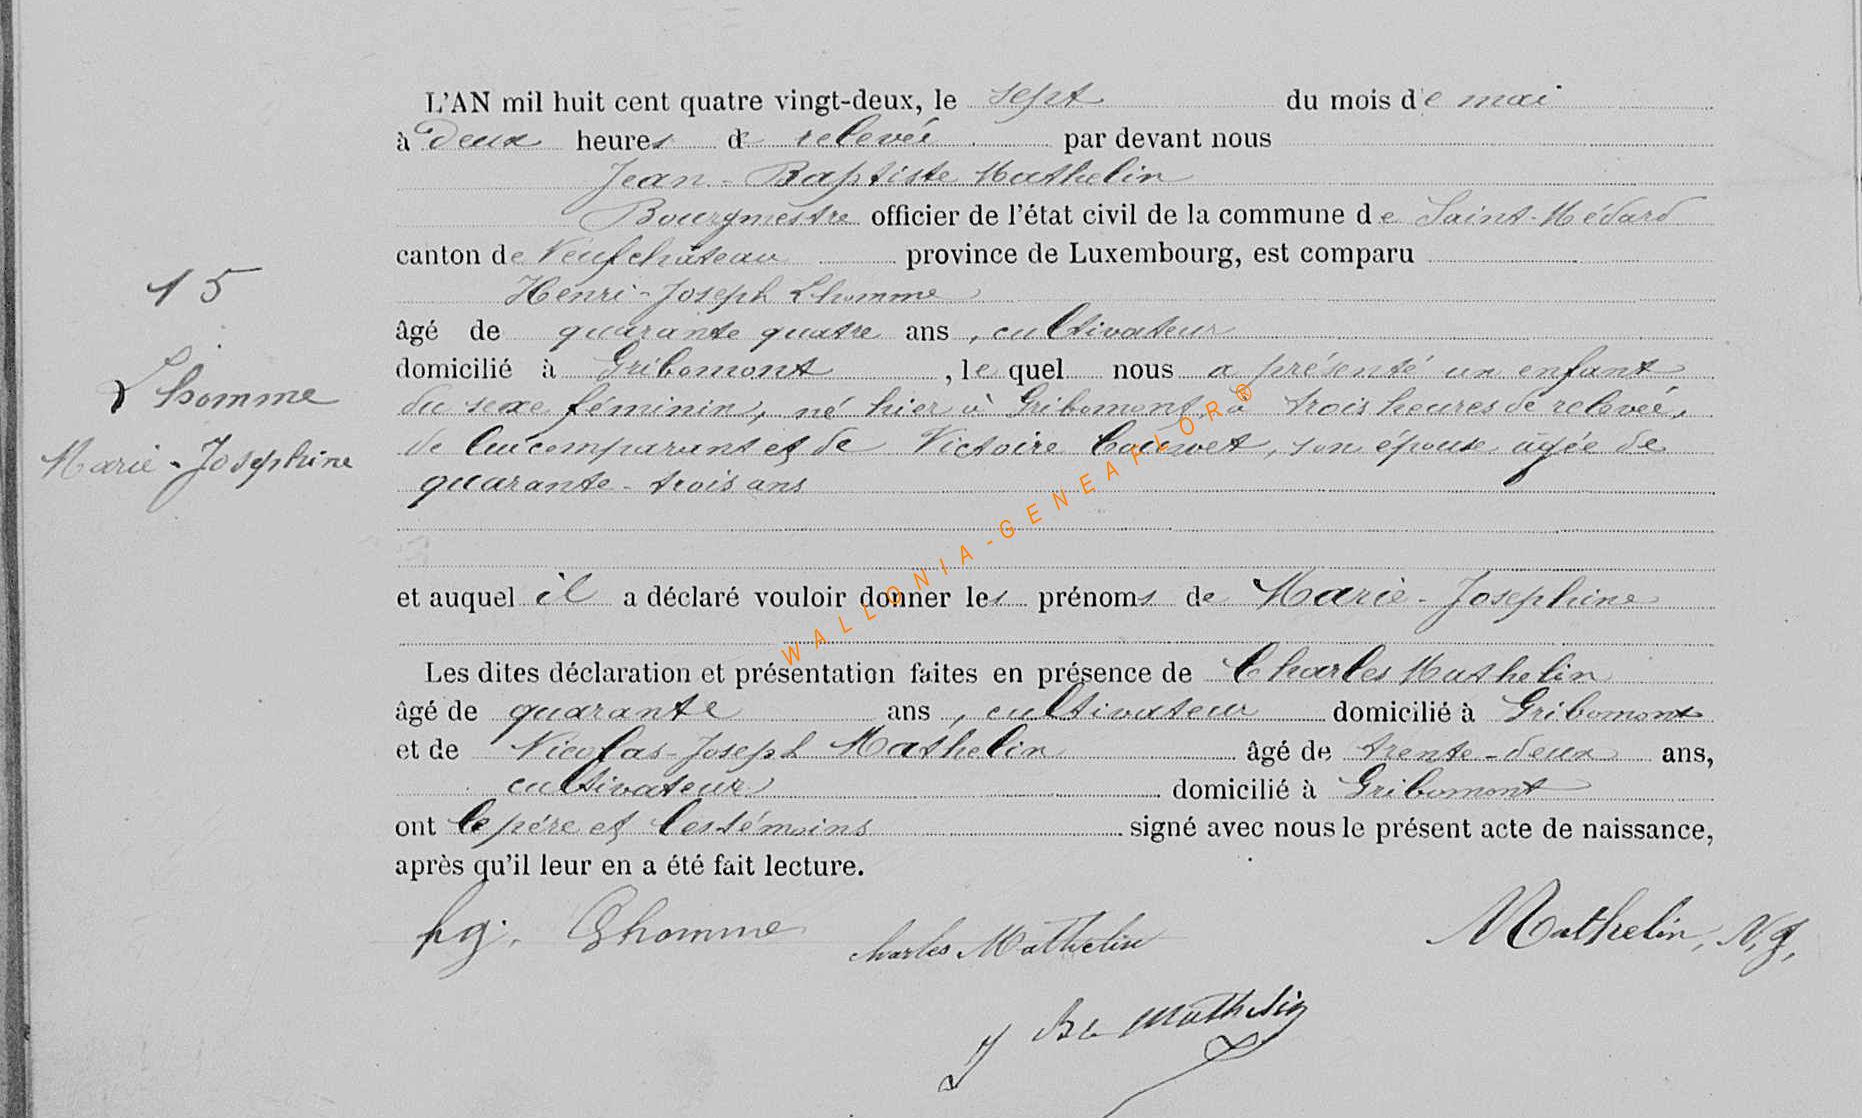 L'AN mil huit cent quatre vingt-deux, le sept du mois de mai
à deux heures de relevée par devant nous
Jean-Baptiste Mathelin
Bourgmestre officier de l'état civil de la commune de Saint-Médard
canton de Neufchâteau province de Luxembourg, est comparu
15
Henri-Joseph Lhomme
âgé de quarante quatre ans, cultivateur
domicilié à Gribomont, le quel nous a présenté un enfant
Lhomme
du sexe féminin, né hier à Gribomont, à trois heures de relevée,
de lui comparant et de Victoire Couvet, son épouse âgée de
Marie-Josephine
quarante-trois ans
et auquel il a déclaré vouloir donner les prénoms de Marie-Josephine
Les dites déclaration et présentation faites en présence de Charles Mathelin
âgé de quarante ans, cultivateur domicilié à Gribomont
et de Nicolas-Joseph Mathelin âgé de trente-deux ans,
cultivateur domicilié à Gribomont
ont le père et les témoins signé avec nous le présent acte de naissance,
après qu'il leur en a été fait lecture.
hg. Lhomme Charles Mathelin Mathelin, N, J,
J Bte Mathelin
WALLONIA-GENEAFLOR®